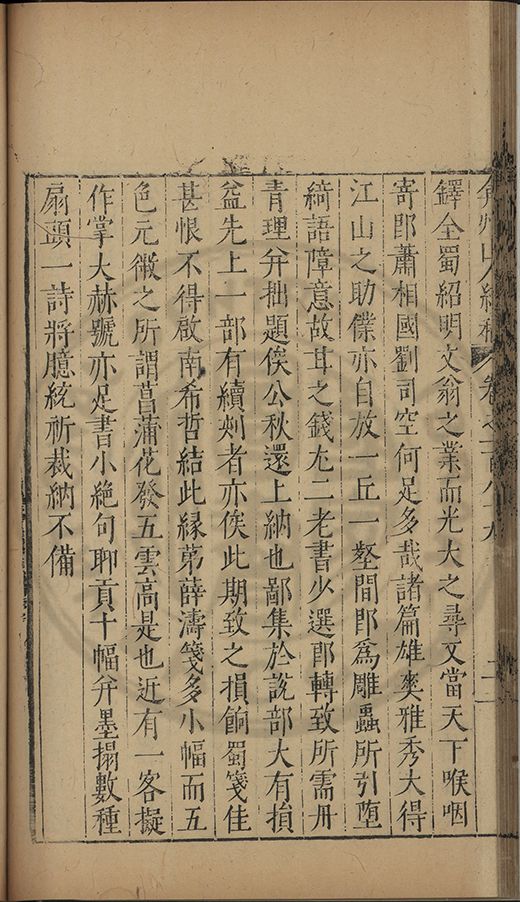 弇州山人續稿 卷之一百八十九
鐸全蜀紹明文翁之業而光大之尋文當天下喉咽
寄即蕭相國劉司空何足多哉諸篇雄爽雅秀大得
江山之助僕亦自放一丘一壑間即爲雕蟲所引墮
綺語障意故耳之錢尢二老書少選即轉致所需丹
青理幷拙題俟公秋還上納也鄙集於說部大有損
益先上一部有續刻者亦俟此期致之損餉蜀箋佳
甚恨不得啟南希哲結此縁苐薛濤箋多小幅而五
色元微之所謂菖蒲花發五雲高是也近有一客擬
作掌大赫號亦足書小絶句聊貢十幅幷墨搨數種
扇頭一詩將臆統祈裁納不備